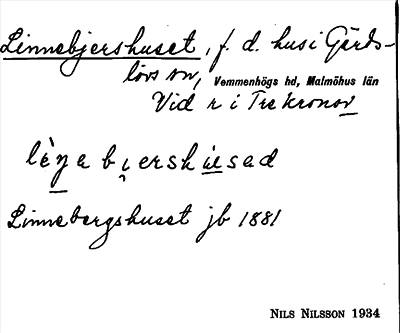 Linnebjershuset, f. d. hus i Gärds-
lövs sn, Vemmenhögs hd, Malmöhus län
Vid r i Tre kronor
Linnebergshuset jb 1881
NILS NILSSON 1934